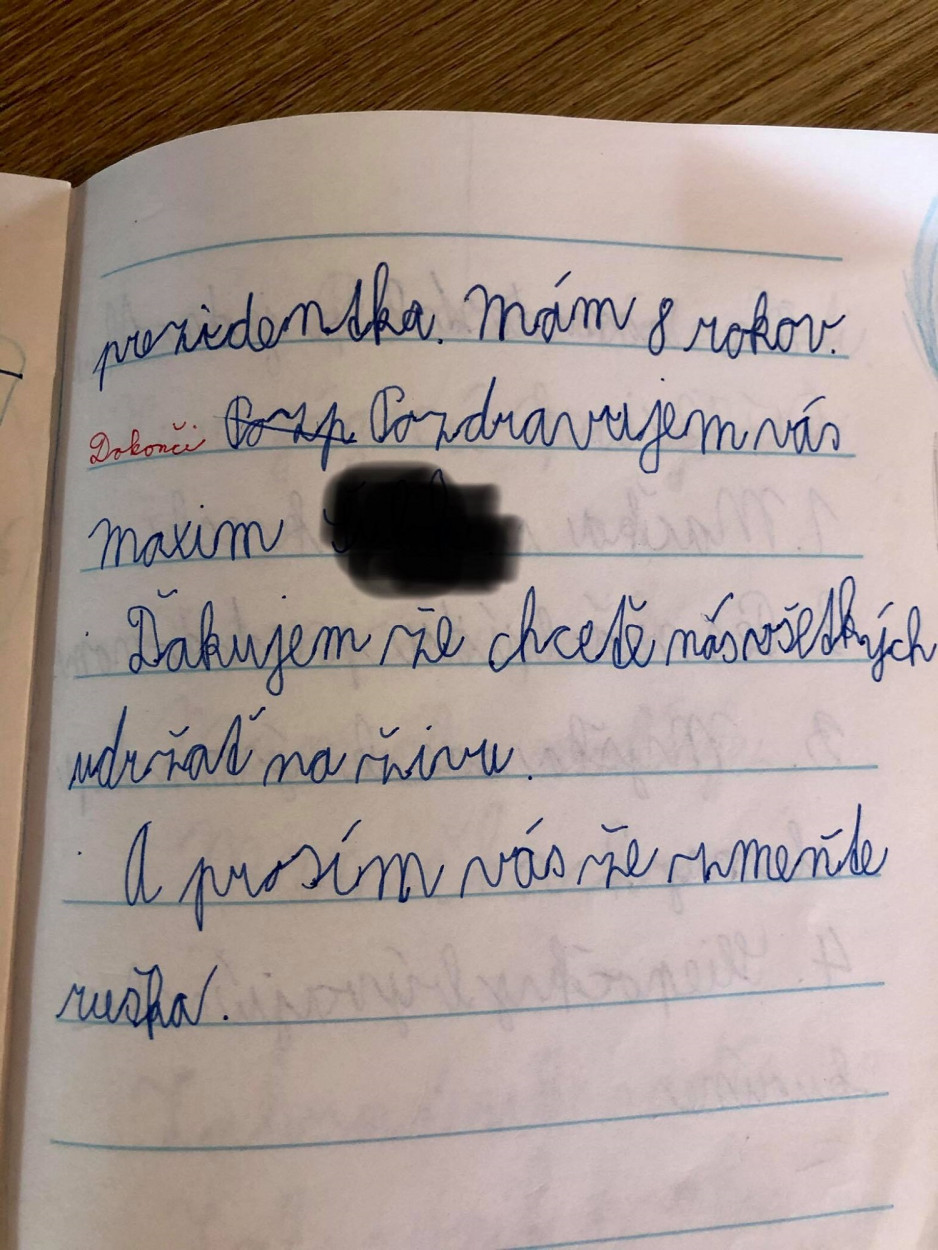 prezidentka. Mám 8 rokov.
Dokonči Pozp Pozdravujem vás
maxim
Ďakujem že chcetě nás všetkých
udržať na živu.
A prosím vás že zmeňte
ruška.